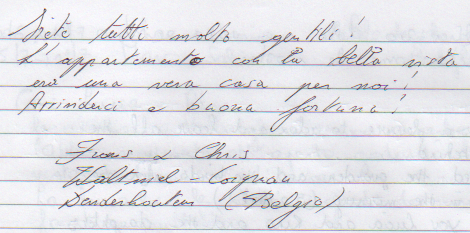 Siete tutti molto gentili!
L'appartamento con la bella vista
era una vera casa per noi!
Arrividerci e buona fortuna!
Frans & Chris
Waltniel - Coignau
Denderhoutem (Belgio)